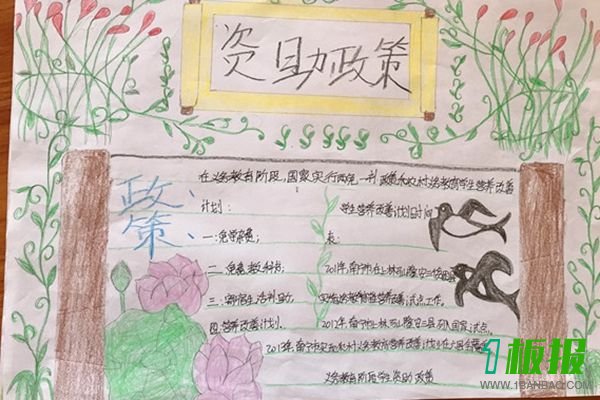 资助政策
政策:
在义务教育阶段,国家实行两免一补政策和农村义务教育学生营养改善
计划:
一:免学杂费;
二、免费教科书;
三、寄宿生生活补助,
四、营养改善计划.
学生营养改善计划时间
表:
2011年,南宁市在上林马山隆安三
实施义务教育营养改善试点工作.
2012年,南宁市上林马山隆安三县列入国家试点.
2013年,南宁市实施农村义务教育营养改善计划
义务教育阶段学生资助政策
1板报
WWW.1BANBAO.COM